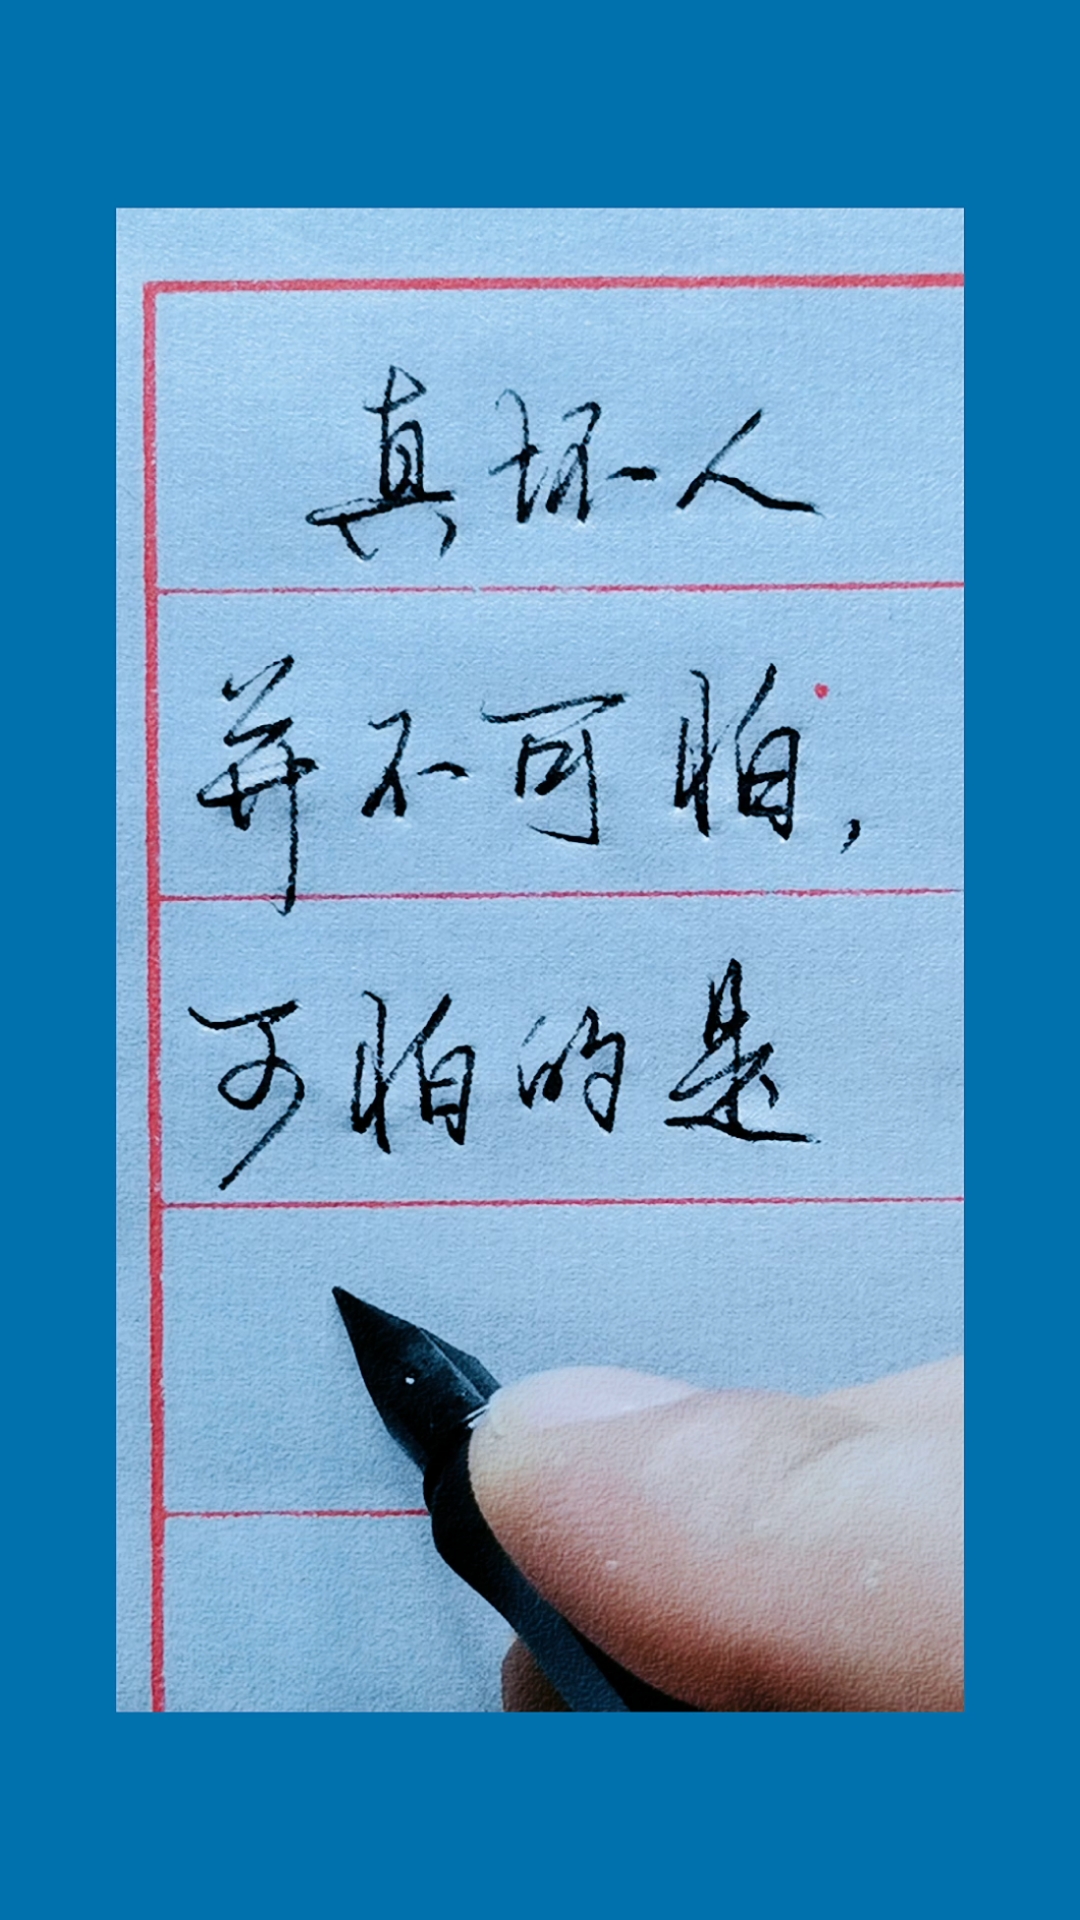 真坏人
并不可怕,
可怕的是